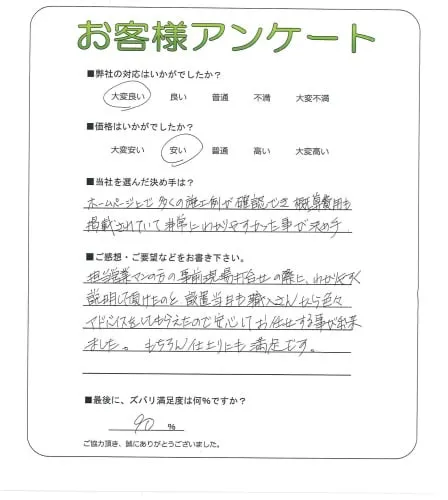 お客様アンケート
■弊社の対応はいかがでしたか？
大変良い 良い 普通 不満 大変不満
■価格はいかがでしたか？
大変安い 安い 普通 高い 大変高い
■当社を選んだ決め手は？
ホームページ上で多くの施工例が確認でき概算費用も
掲載されていて非常にわかりやすかった事が決め手
■ご感想・ご要望などをお書き下さい。
担当営業マンの方の事前現場打合せの際に、わかりやすく
説明して頂けたのと設置当日も職人さんから色々
アドバイスをしてもらえたので安心してお任せする事が出来
ました。もちろん仕上りにも満足です。
■最後に、ズバリ満足度は何％ですか？
90 %
ご協力頂き、誠にありがとうございました。